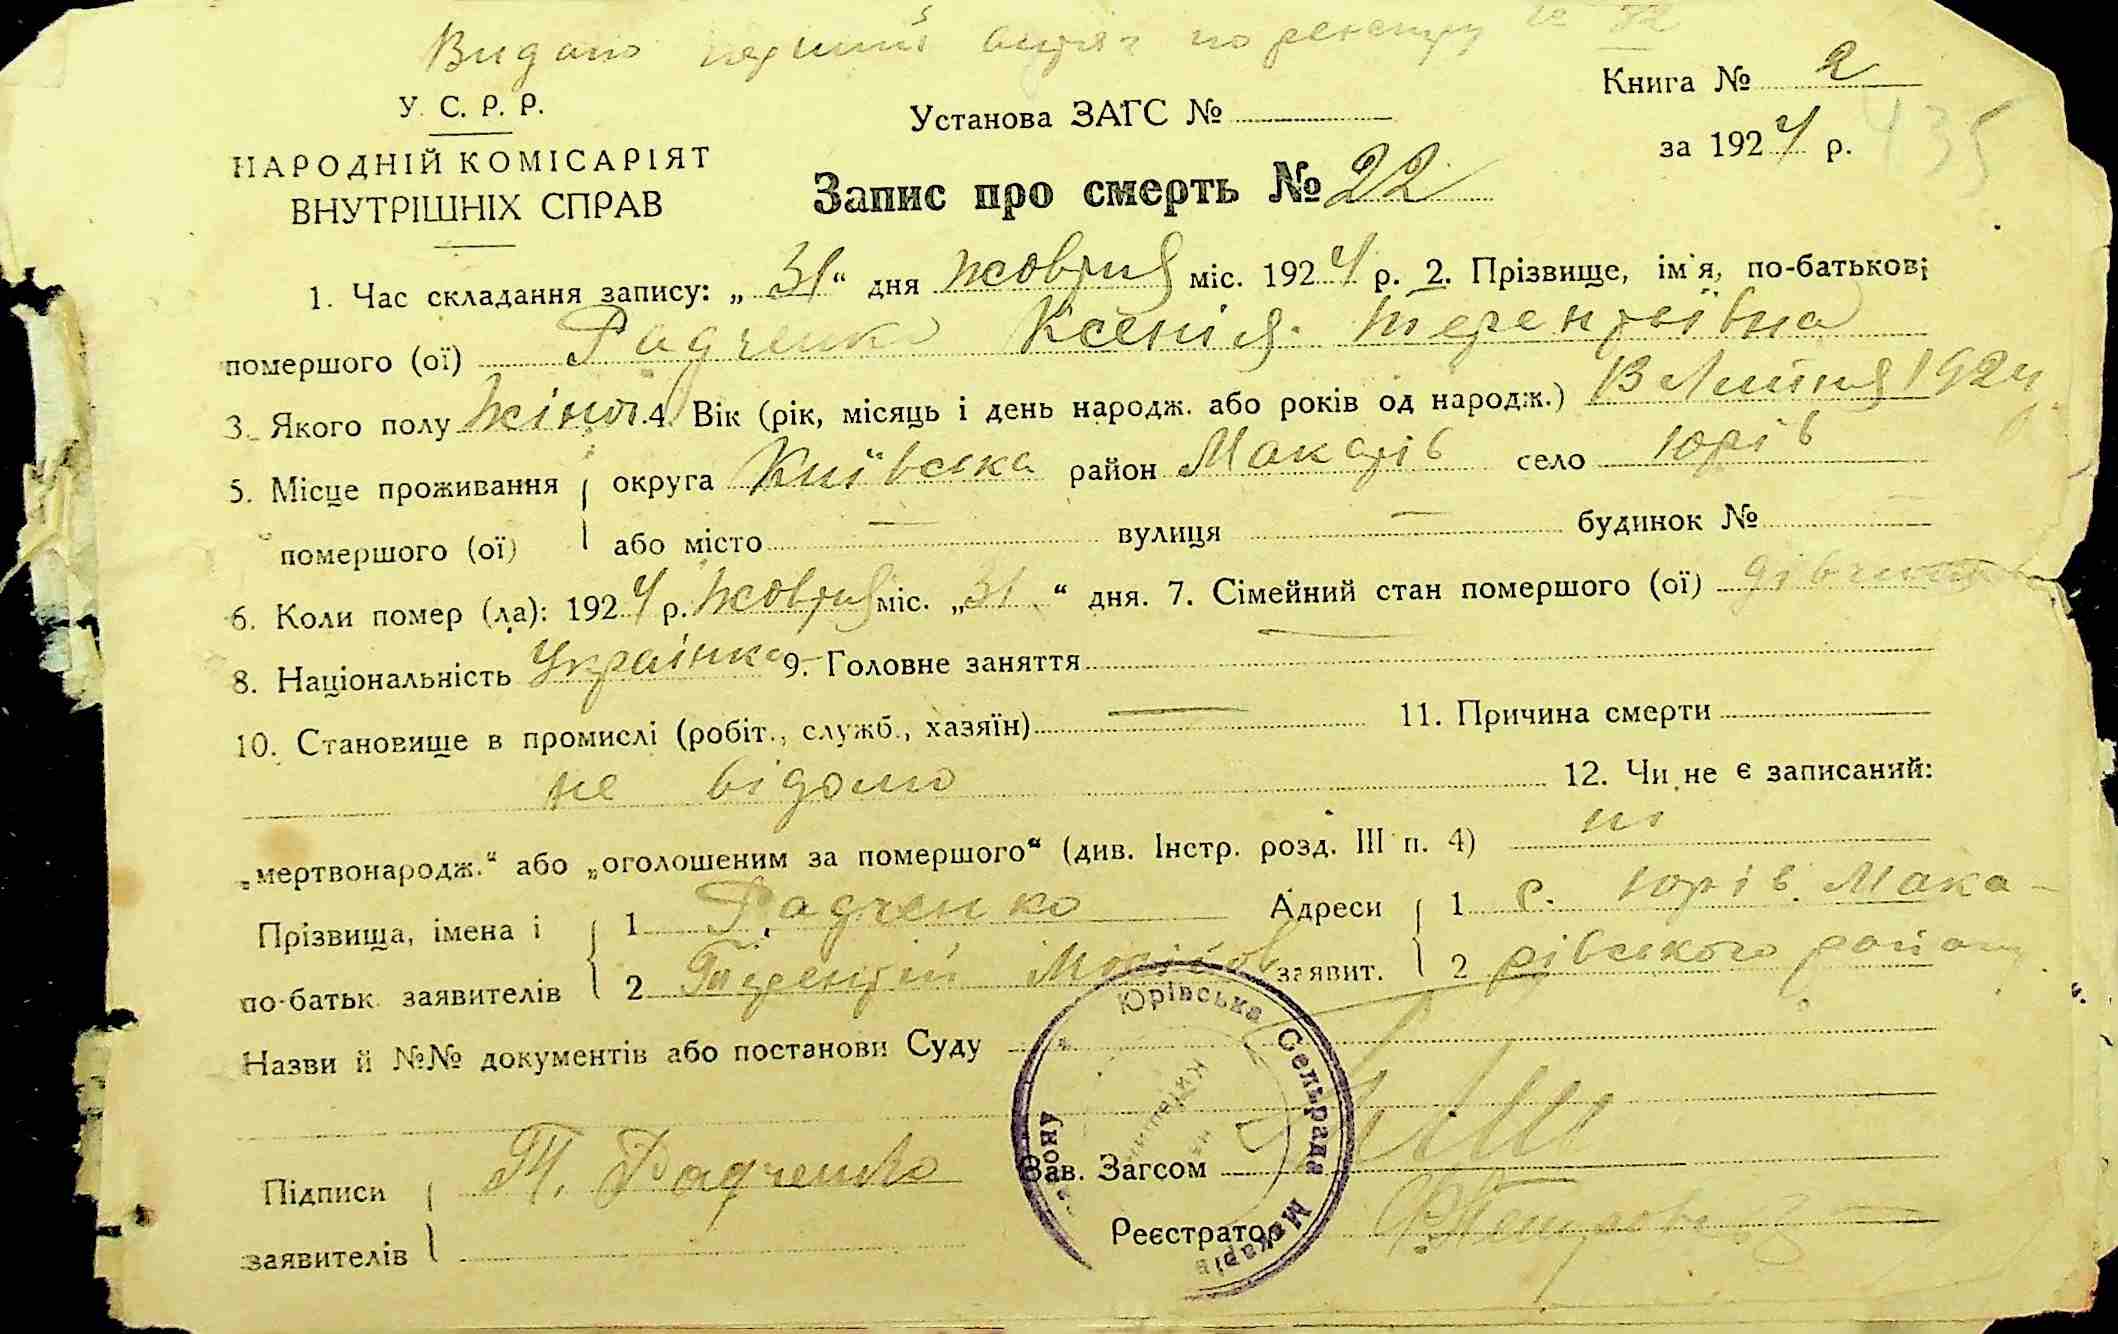 Видано перший витяг по реєстру № 72
Книга № 2
У. С. Р. Р.
Установа ЗАГС №
за 1924 р.
435
НАРОДНІЙ КОМІСАРІЯТ
ВНУТРІШНІХ СПРАВ
Запис про смерть № 22
1. Час складання запису: „31“ дня жовтня міс. 1924 р. 2. Прізвище, ім'я, по-батькові
помершого (ої) Радченко Ксенія Терентьівна
3. Якого полу жіноч. 4. Вік (рік, місяць і день народж. або років од народж.) 13 Липня 1924
5. Місце проживання округа Київська район Макарів село Юрів
помершого (ої) або місто — вулиця — будинок №
6. Коли помер (ла): 1924 р. жовтня міс. „31“ дня. 7. Сімейний стан помершого (ої)
8. Національність Українка 9. Головне заняття —
10. Становище в промислі (робіт., служб., хазяїн) — 11. Причина смерти
не відомо 12. Чи не є записаний:
„мертвонародж.“ або „оголошеним за помершого“ (див. Інстр. розд. III п. 4) ні
Прізвища, імена і 1 Радченко Адреси 1 с. Юрів Мака-
по-батьк. заявителів 2 Терентій заявит. 2 рівського району
Назви й №№ документів або постанови Суду
Юрівська Сельрада Макарів
району
на Київщині
Підписи Т. Радченко Зав. Загсом
заявителів Реєстратор